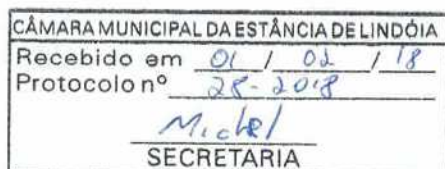 CÂMARA MUNICIPAL DA ESTÂNCIA DE LINDÓIA
Recebido em 01 / 02 / 18
Protocolo nº 28-2018
Michel
SECRETARIA